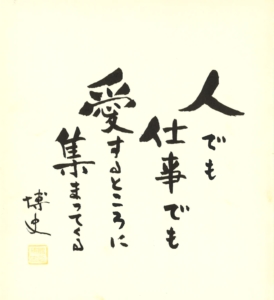 人でも
仕事でも
愛するところに
集まってくる
博史